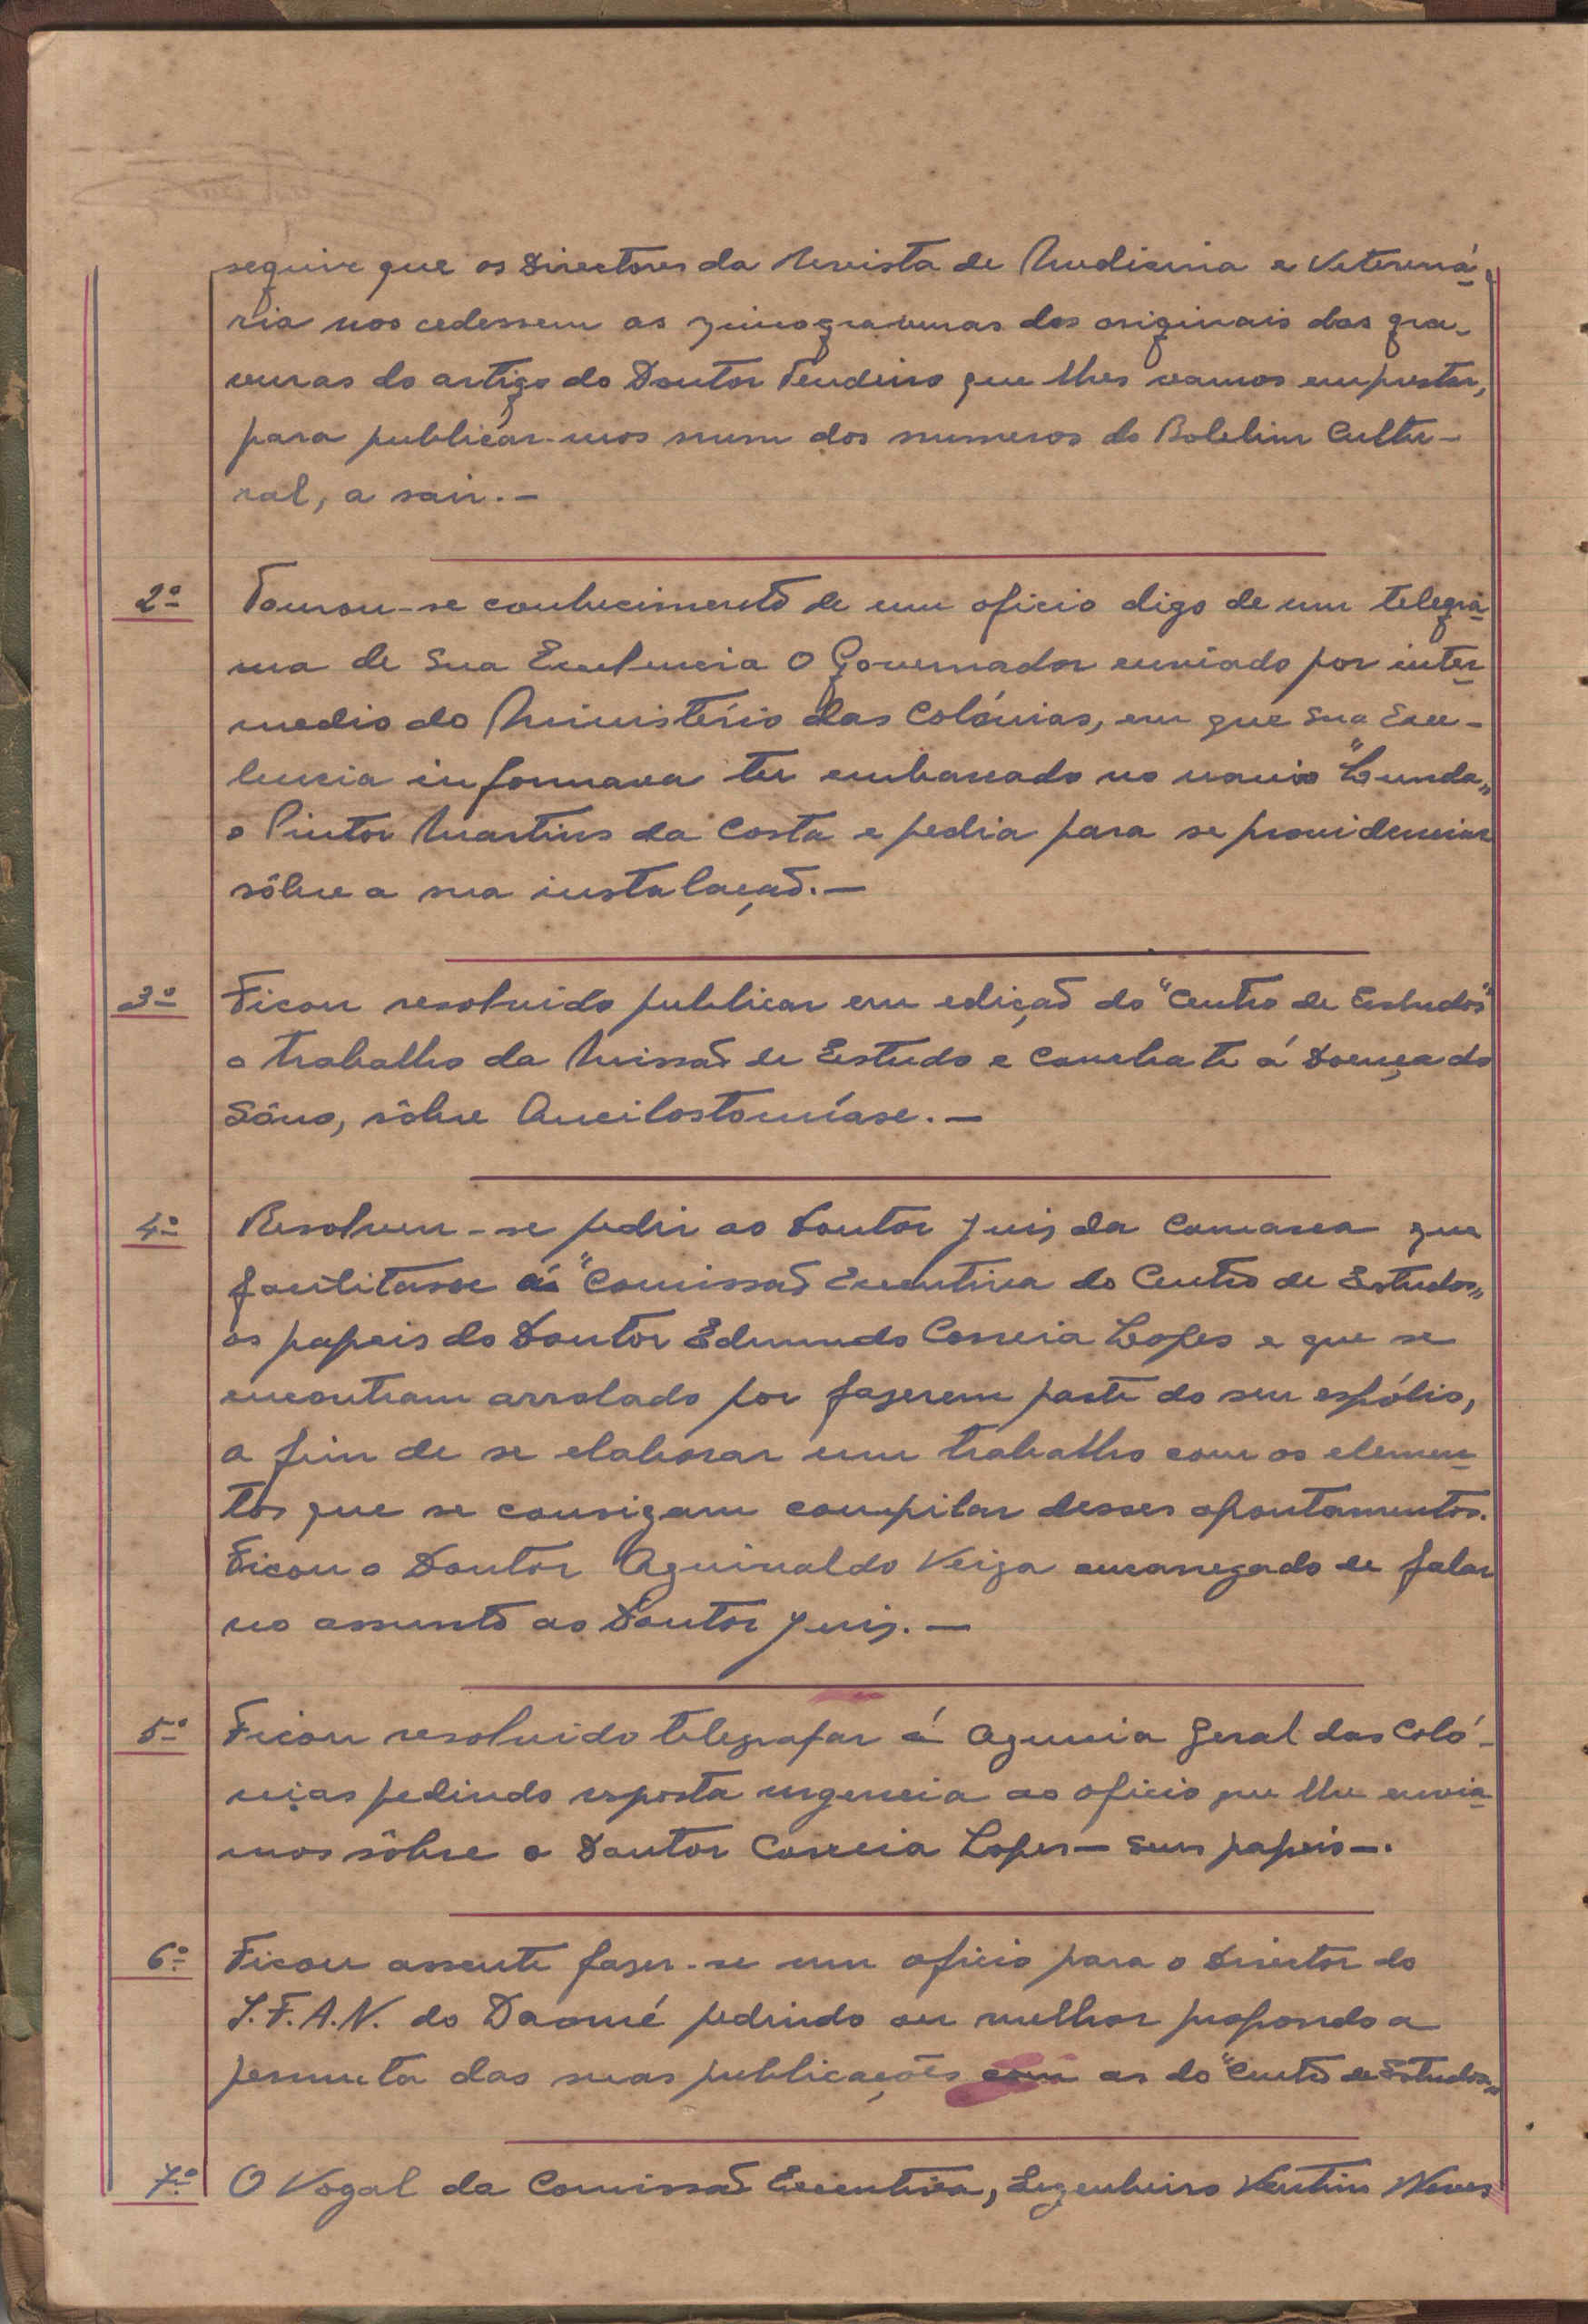 seguir que os Directores da Revista de Medicina e Veteriná-
ria nos cedessem as zincogravuras dos originais das gra-
vuras do artigo do Doutor Tendeiro que lhes vamos emprestar,
para publicár-mos num dos numeros do Boletim Cultu-
ral, a sair.-
2º Tomou-se conhecimento de um oficio digo de um telegra-
ma de Sua Excelencia O Governador enviado por inter-
medio do Ministério das Colónias, em que Sua Exce-
lencia informava ter embarcado no navio "Lunda"
o Pintor Martins da Costa e pedia para se providenciar
sôbre a sua instalação.-
3º Ficou resolvido publicar em edição do "Centro de Estudos"
o trabalho da Missão de Estudo e Combate á Doença do
Sôno, sôbre Ancilostomíase.-
4º Resolveu-se pedir ao Doutor Juiz da Comarca que
facilitasse á "Comissão Executiva do Centro de Estudos"
os papeis do Doutor Edmundo Correia Lopes e que se
encontram arrolado por fazerem parte do seu espólio,
a fim de se elaborar um trabalho com os elemen-
tos que se consigam compilar desses apontamentos.
Ficou o Doutor Aguinaldo Veiga encarregado de falar
no assunto ao Doutor Juiz.-
5º Ficou resolvido telegrafar á Agencia Geral das Coló-
nias pedindo resposta urgencia ao oficio que lhe envia-
mos sôbre o Doutor Correia Lopes - seus papeis-.
6º Ficou assente fazer-se um oficio para o Director do
I.F.A.N. do Daomé pedindo ou melhor propondo a
permuta das suas publicações com as do "Centro de Estudos"
7º O Vogal da Comissão Executiva, Engenheiro Ventim Neves